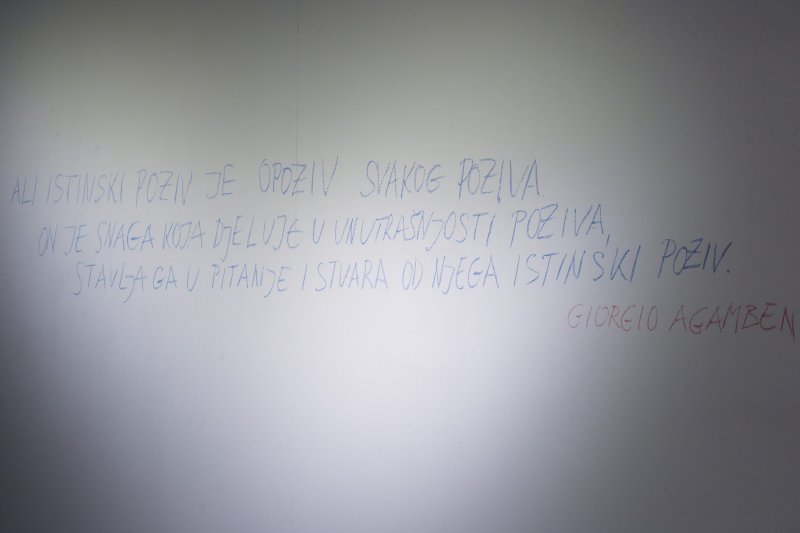 ALI ISTINSKI POZIV JE OPOZIV SVAKOG POZIVA
ON JE SNAGA KOJA DJELUJE U UNUTRAŠNJOSTI POZIVA,
STAVLJA GA U PITANJE I STVARA OD NJEGA ISTINSKI POZIV.
GIORGIO AGAMBEN